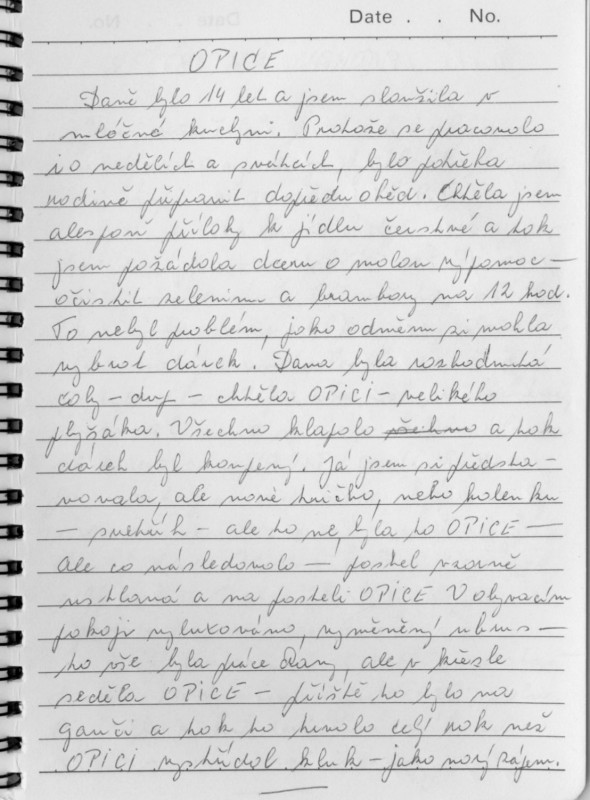 Date . . No.
OPICE
Daně bylo 14 let a jsem sloužila v
mléčné kuchyni. Protože se pracovalo
i o nedělích a svátcích, bylo potřeba
rodině připravit dopředu oběd. Chtěla jsem
alespoň přílohy k jídlu čerstvé a tak
jsem požádala dceru o malou výpomoc –
očistit zeleninu a brambory na 12 hod.
To nebyl problém, jako odměnu si mohla
vybrat dárek. Dana byla rozhodnutá
coby – dup – chtěla OPICI – velikého
plyšáka. Všechno klapalo všechno a tak
dárek byl koupený. Já jsem si předsta –
vovala, ale nové tričko, nebo
– svetřík – ale to ne, byla to OPICE –
ale co následovalo – postel vzorně
ustlaná a na posteli OPICE V obývacím
pokoji vyluxováno, vyměněný ubrus –
to vše byla práce Dany, ale v křesle
seděla OPICE – příště to bylo na
gauči a tak to trvalo celý rok než
OPICI vystřídal kluk – jako nový zájem.